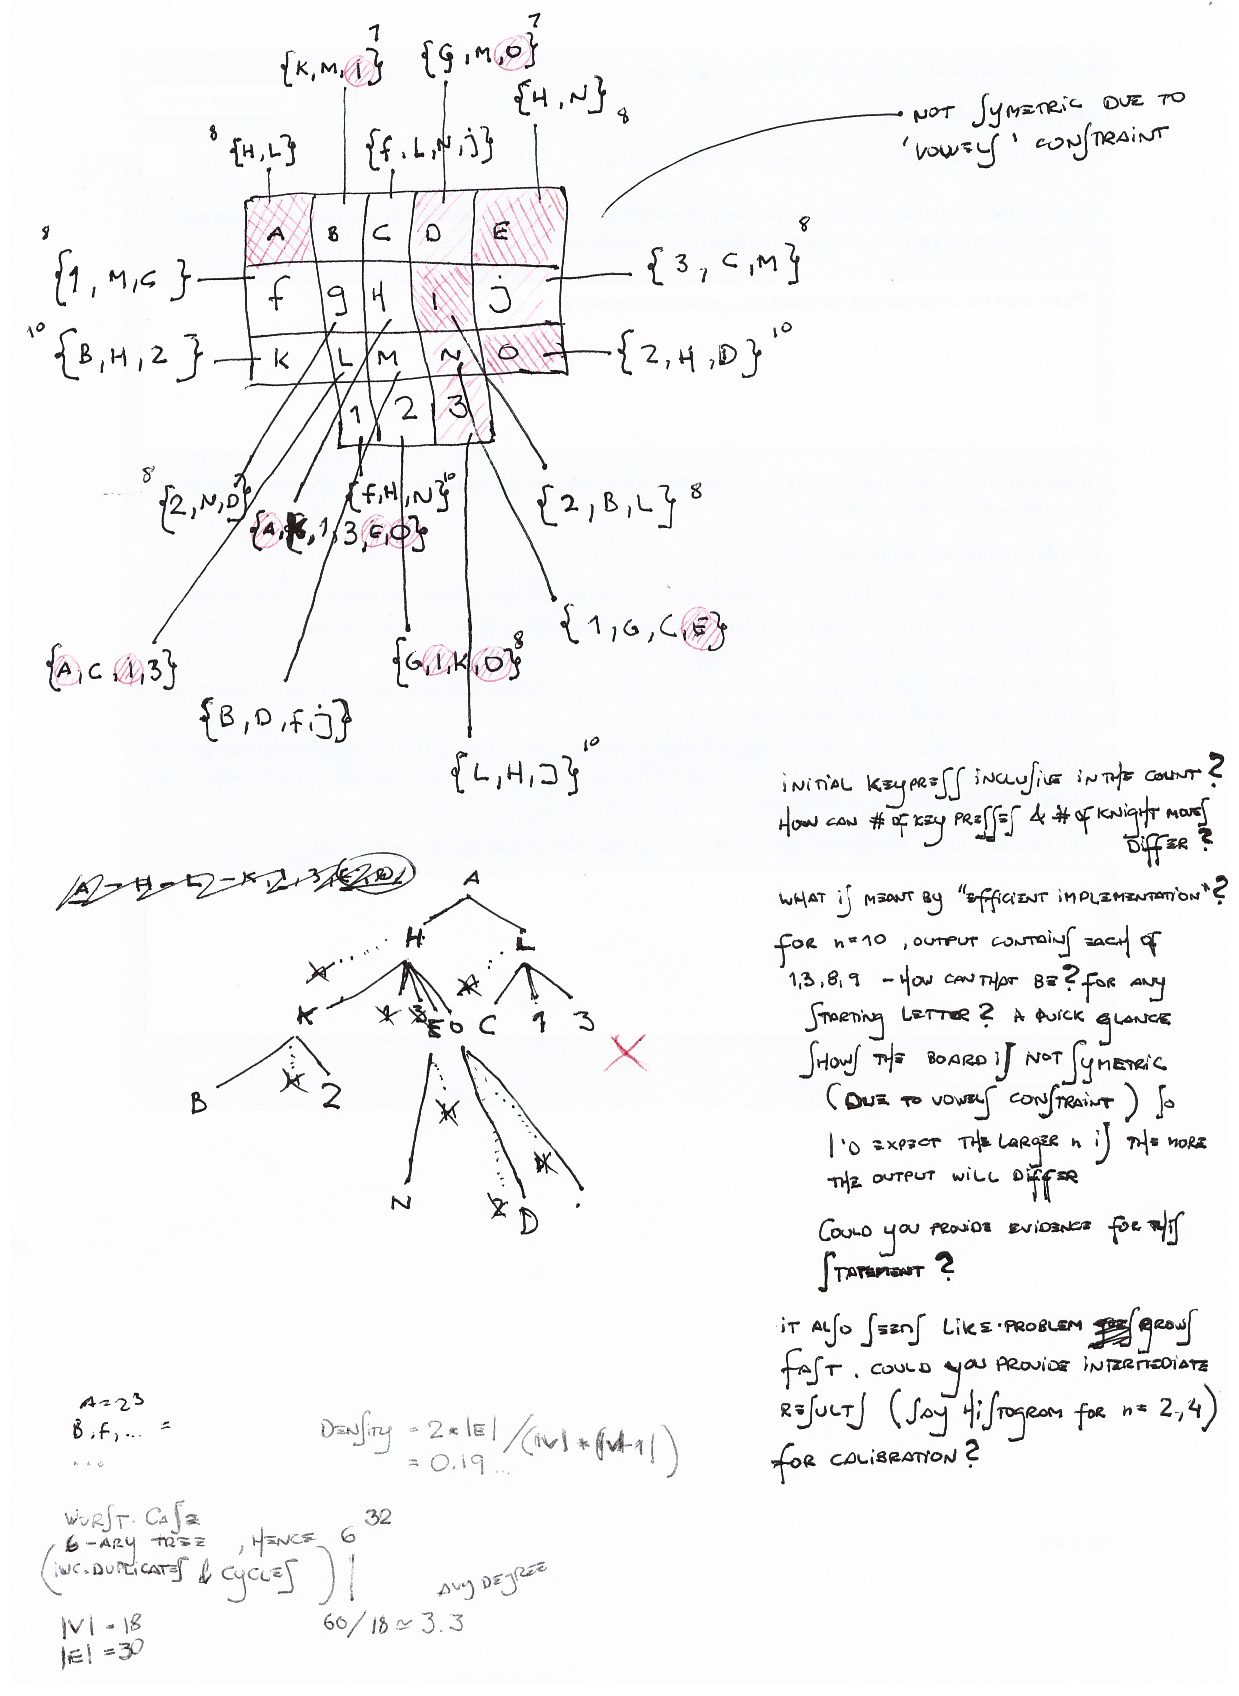 {K, M, 1}7
{G, M, O}7
{H, N}8
8{H, L}
{f, L, N, j}
NOT SYMETRIC DUE TO
'VOWELS' CONSTRAINT
A B C D E
8{1, M, C}
f g H i j
{3, C, M}8
10{B, H, 2}
K L M N O
{2, H, D}10
1 2 3
8{2, N, D}
{f, H, N}10
{2, B, L}8
{A, K, 1, 3, E, O}
{1, G, C, E}
{A, C, 1, 3}
{G, 1, K, O}8
{B, D, f, j}
{L, H, J}10
INITIAL KEYPRESS INCLUSIVE IN THE COUNT?
HOW CAN # OF KEY PRESSES & # OF KNIGHT MOVES
DIFFER?
A - H - L - K, 1, 3, E, O
A
H L
K 1 3 E O C 1 3
B 2
N 2 D
WHAT IS MEANT BY "EFFICIENT IMPLEMENTATION"?
FOR n=10, OUTPUT CONTAINS EACH OF
1,3,8,9 - HOW CAN THAT BE? FOR ANY
STARTING LETTER? A QUICK GLANCE
SHOWS THE BOARD IS NOT SYMETRIC
(DUE TO VOWELS CONSTRAINT) SO
I'D EXPECT THE LARGER n IS THE MORE
THE OUTPUT WILL DIFFER
COULD YOU PROVIDE EVIDENCE FOR THIS
STATEMENT?
IT ALSO SEEMS LIKE PROBLEM GROWS
FAST. COULD YOU PROVIDE INTERMEDIATE
RESULTS (SAY HISTOGRAM FOR n=2,,4)
FOR CALIBRATION?
A = 23
B, f, ... =
...
DENSITY = 2 * |E| / (|V| * |V-1|)
= 0.19...
WURST CASE
6-ARY TREE, HENCE 6^32
(INC. DUPLICATES & CYCLES)
|V| = 18
|E| = 30
AVG DEGREE
60/18 ≃ 3.3